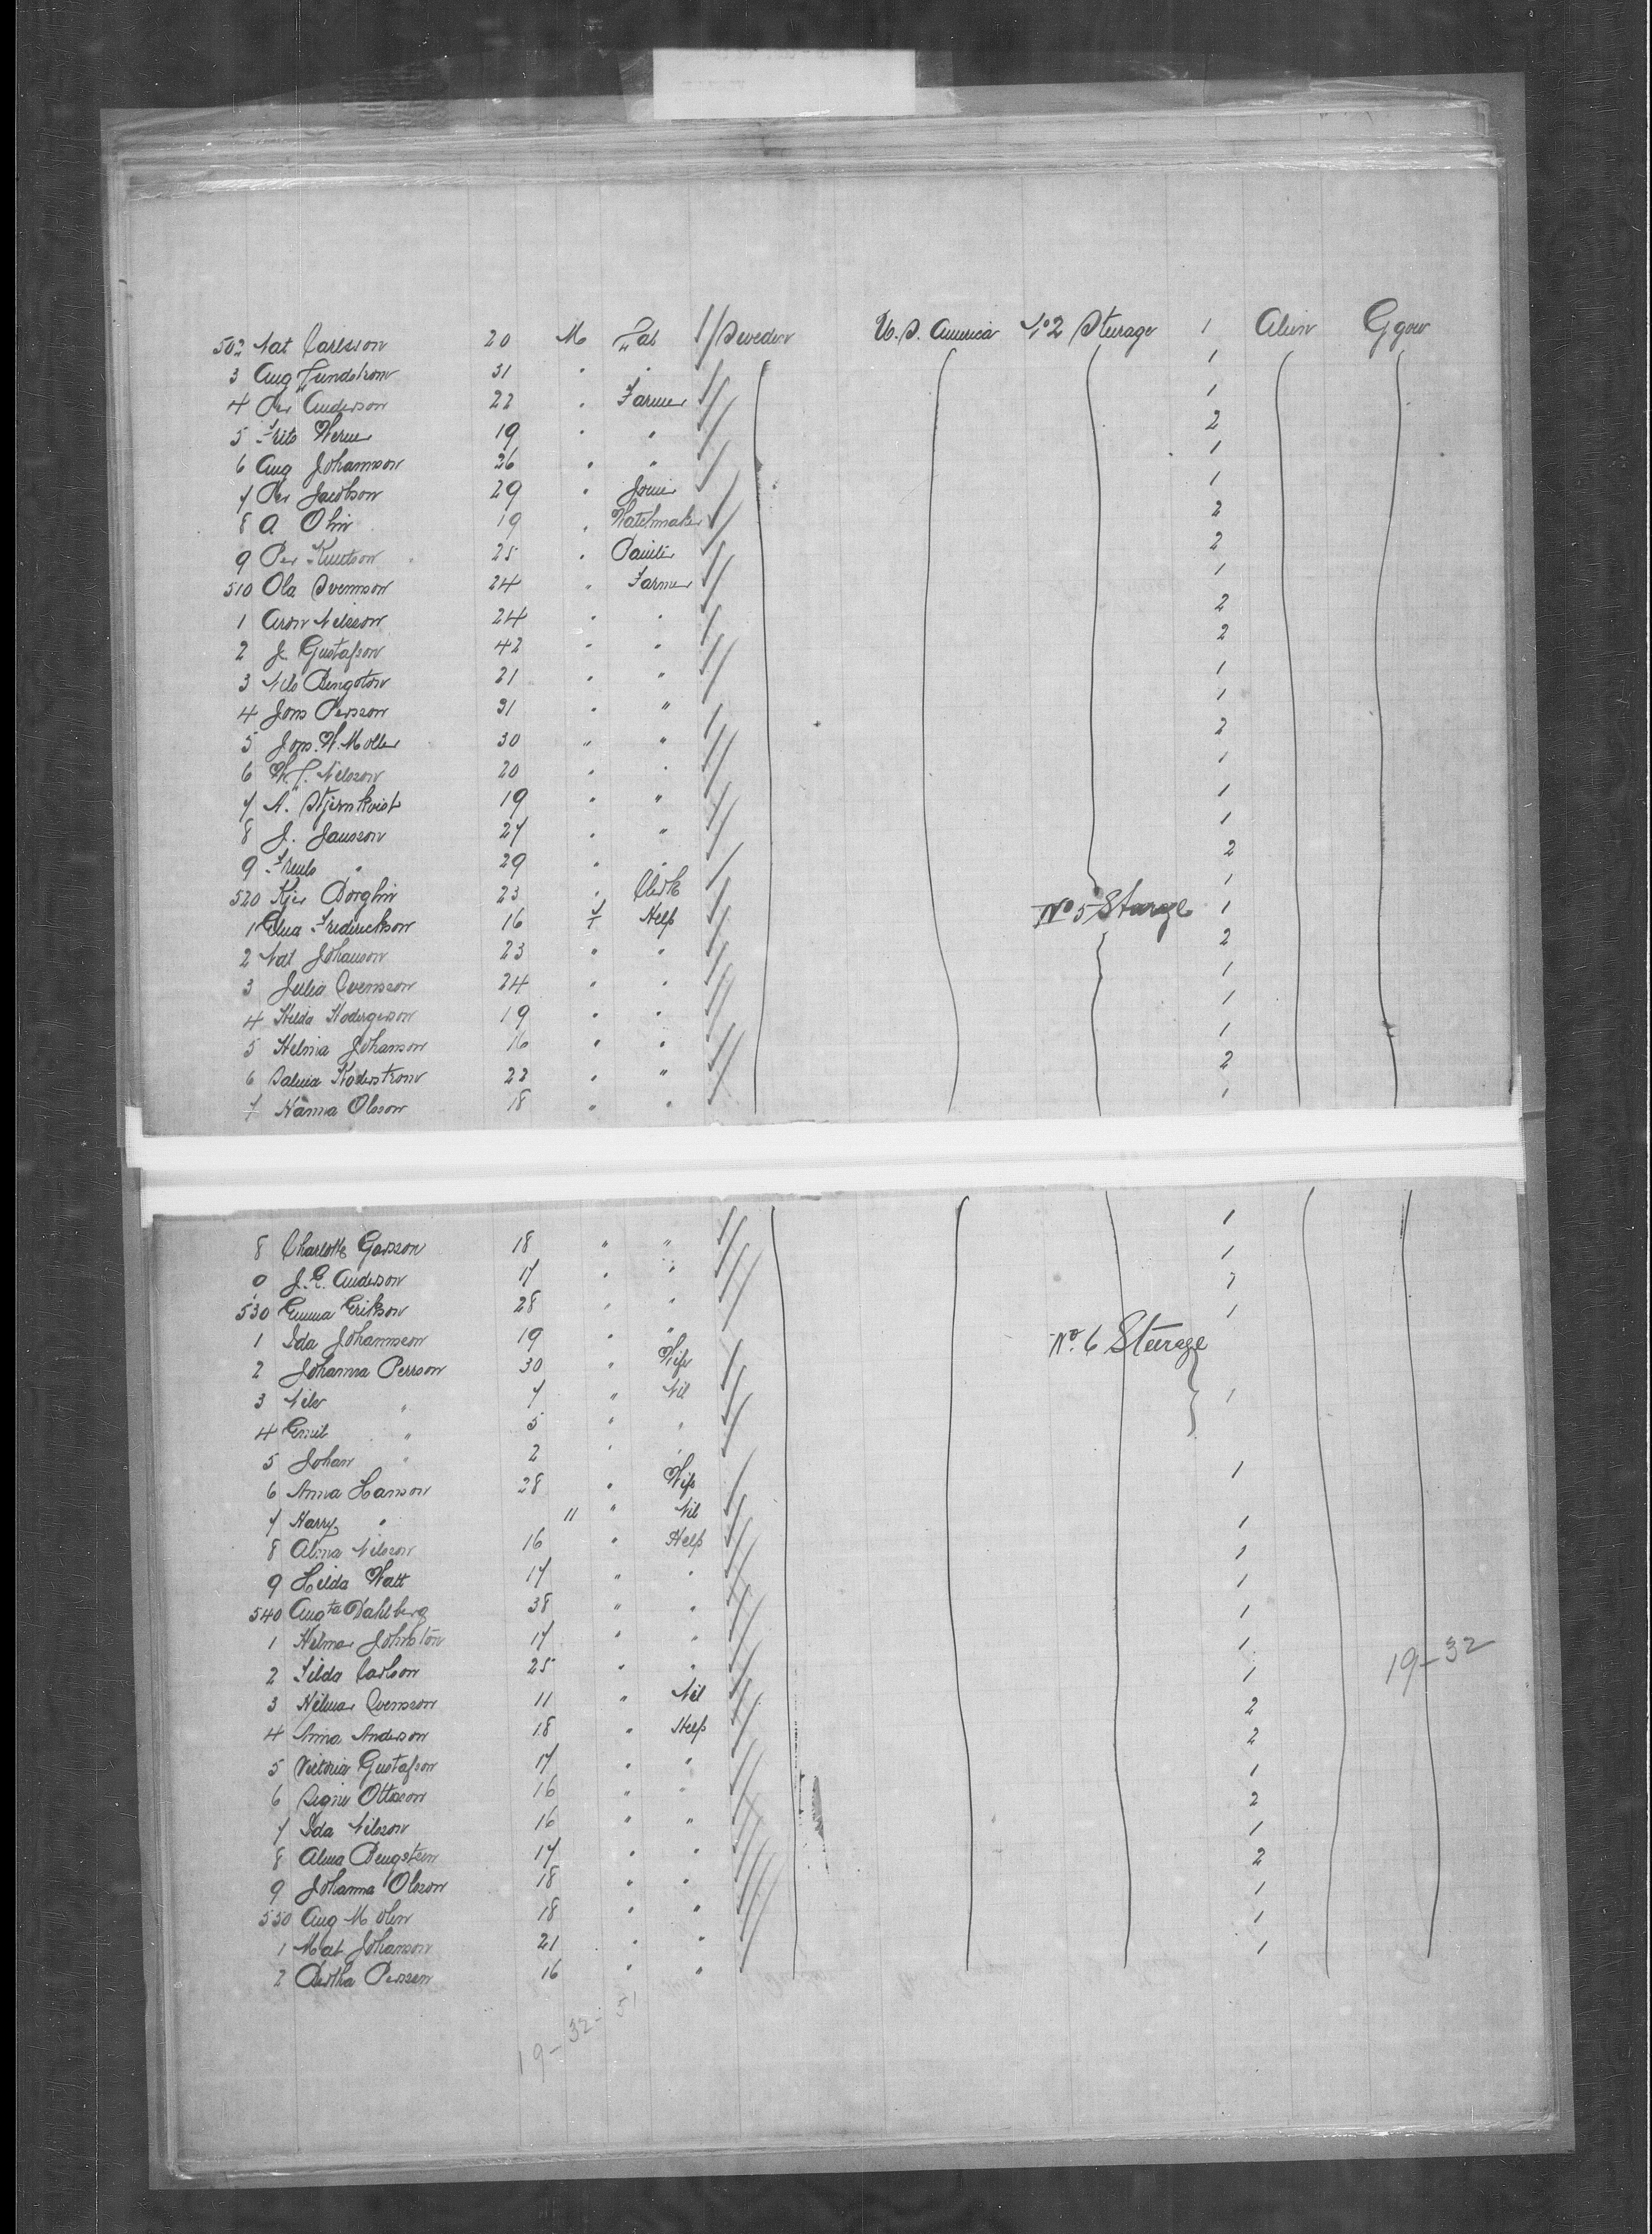 502 Nat Carlsson 20 M Lab Sweden U.S. America No 2 Steerage 1 Alien Ggow
3 Aug Lundstrom 31 " " 1
4 Per Anderson 22 " Farmer 1
5 Frits Werne 19 " " 2
6 Aug Johannson 26 " " 1
7 Per Jacobson 29 " Joiner 1
8 A Ohin 19 " Watchmaker 2
9 Per Knutson 25 " Painter 2
510 Ola Svennson 24 " Farmer 1
1 Aron Nilsson 24 " " 2
2 J. Gustafson 42 " " 2
3 Nils Bengston 21 " " 1
4 Jons Persson 31 " " 1
5 Jons. W. Moller 30 " " 2
6 W. L. Nilsson 20 " " 1
7 A. Stjernkvist 19 " " 1
8 J. Jansson 27 " " 1
9 " 29 " " 2
520 Borghin 23 " Clerk 1
1 Elna Fredrickson 16 F Help No 5 Steerage 1
2 Nat Johanson 23 " " 2
3 Julia Svensson 24 " " 1
4 Hilda 19 " " 1
5 Helma Johanson 16 " " 1
6 Salma Koderstrom 22 " " 2
7 Hanna Olsson 18 " " 1
8 Charlotte Garsson 18 " " 1
9 J. E. Anderson 17 " " 1
530 Emma Erikson 28 " " 1
1 Ida Johannson 19 " " 1
2 Johanna Persson 30 " Wife No. 6 Steerage
3 Nils " 7 " Nil 1
4 Emil " 5 " "
5 Johan " 2 " "
6 Anna Hanson 28 " Wife 1
7 Harry " 11 " Nil
8 Alma Nilsson 16 " Help 1
9 Hilda Watt 17 " " 1
540 Augta Dahlberg 38 " " 1
1 Helma Johnston 17 " " 1
2 Tilda Carlson 25 " " 1
19-32
3 Hilma Svensson 11 " Nil 1
4 Anna Anderson 18 " Help 2
5 Victoria Gustafson 17 " " 2
6 Signe Ottoson 16 " " 1
7 Ida Nilsson 16 " " 2
8 Alma Bengsten 17 " " 1
9 Johanna Olsson 18 " " 2
550 Aug Molin 18 " " 1
1 Mat Johanson 21 " " 1
2 Bertha Persson 16 " " 1
19-32-51